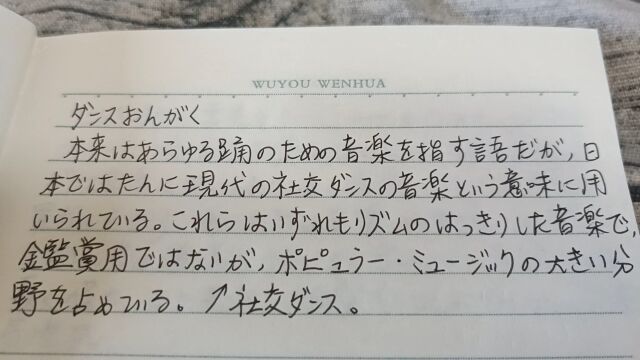 WUYOU WENHUA
ダンスおんがく
本来はあらゆる踊のための音楽を指す語だが,日
本ではたんに現代の社交ダンスの音楽という意味に用
いられている。これらはいずれもリズムのはっきりした音楽で,
鑑賞用ではないが,ポピュラー・ミュージックの大きい分
野を占めている。↗社交ダンス。